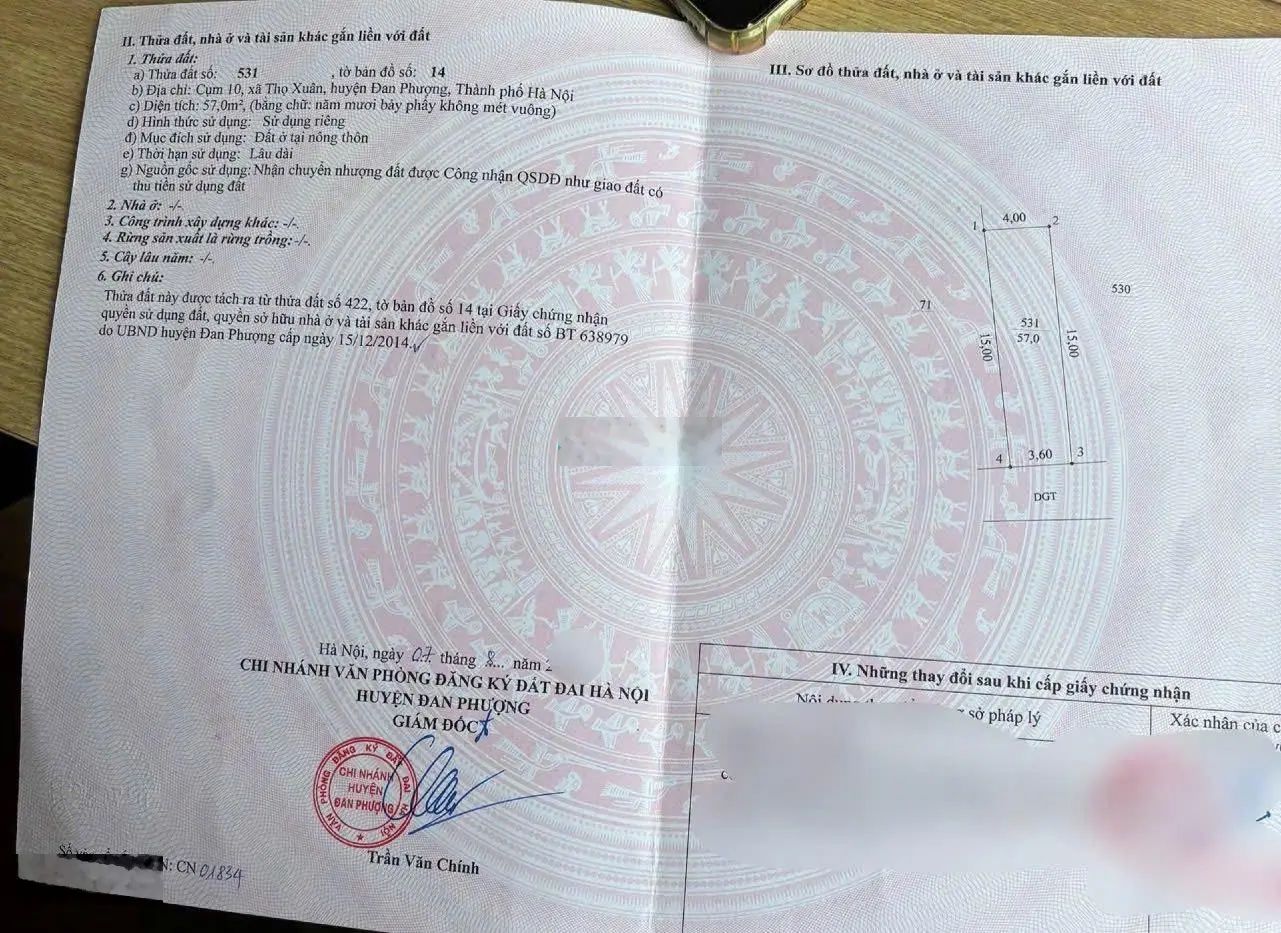 II. Thửa đất, nhà ở và tài sản khác gắn liền với đất
1. Thửa đất:
a) Thửa đất số: 531 , tờ bản đồ số: 14
b) Địa chỉ: Cụm 10, xã Thọ Xuân, huyện Đan Phượng, Thành phố Hà Nội
c) Diện tích: 57,0m², (bằng chữ: năm mươi bảy phẩy không mét vuông)
d) Hình thức sử dụng: Sử dụng riêng
đ) Mục đích sử dụng: Đất ở tại nông thôn
e) Thời hạn sử dụng: Lâu dài
g) Nguồn gốc sử dụng: Nhận chuyển nhượng đất được Công nhận QSDĐ như giao đất có
thu tiền sử dụng đất
2. Nhà ở: -/-
3. Công trình xây dựng khác: -/-.
4. Rừng sản xuất là rừng trồng: -/-.
5. Cây lâu năm: -/-.
6. Ghi chú:
Thửa đất này được tách ra từ thửa đất số 422, tờ bản đồ số 14 tại Giấy chứng nhận
quyền sử dụng đất, quyền sở hữu nhà ở và tài sản khác gắn liền với đất số BT 638979
do UBND huyện Đan Phượng cấp ngày 15/12/2014.
Hà Nội, ngày 07 tháng 8... năm 2
CHI NHÁNH VĂN PHÒNG ĐĂNG KÝ ĐẤT ĐAI HÀ NỘI
HUYỆN ĐAN PHƯỢNG
GIÁM ĐỐC
VĂN PHÒNG ĐĂNG KÝ ĐẤT ĐAI HÀ NỘI
CHI NHÁNH
HUYỆN
ĐAN PHƯỢNG
Trần Văn Chính
Số N: CN 01834
III. Sơ đồ thửa đất, nhà ở và tài sản khác gắn liền với đất
4,00
1
2
530
71
531
57,0
15,00
15,00
4
3,60
3
DGT
IV. Những thay đổi sau khi cấp giấy chứng nhận
Nội sở pháp lý
Xác nhận của c